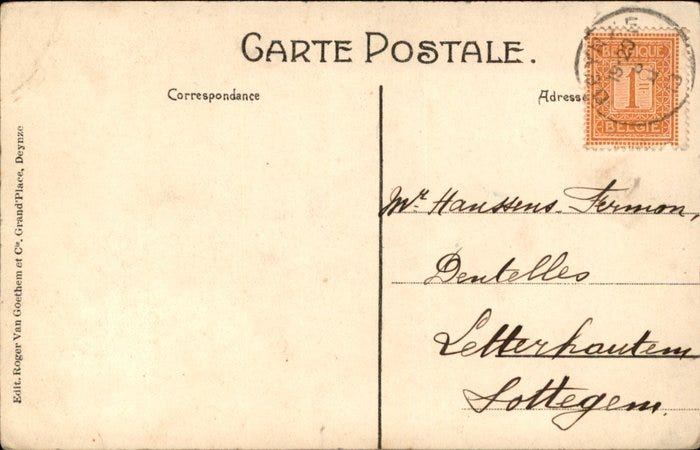 CARTE POSTALE.
Correspondance
Adresse
BELGIQUE
1
BELGIË
Mr. Hanssens-Fermon,
Dentelles
Letterhautem
Sottegem.
Edit. Roger Van Goethem et Cie, Grand'Place, Deynze